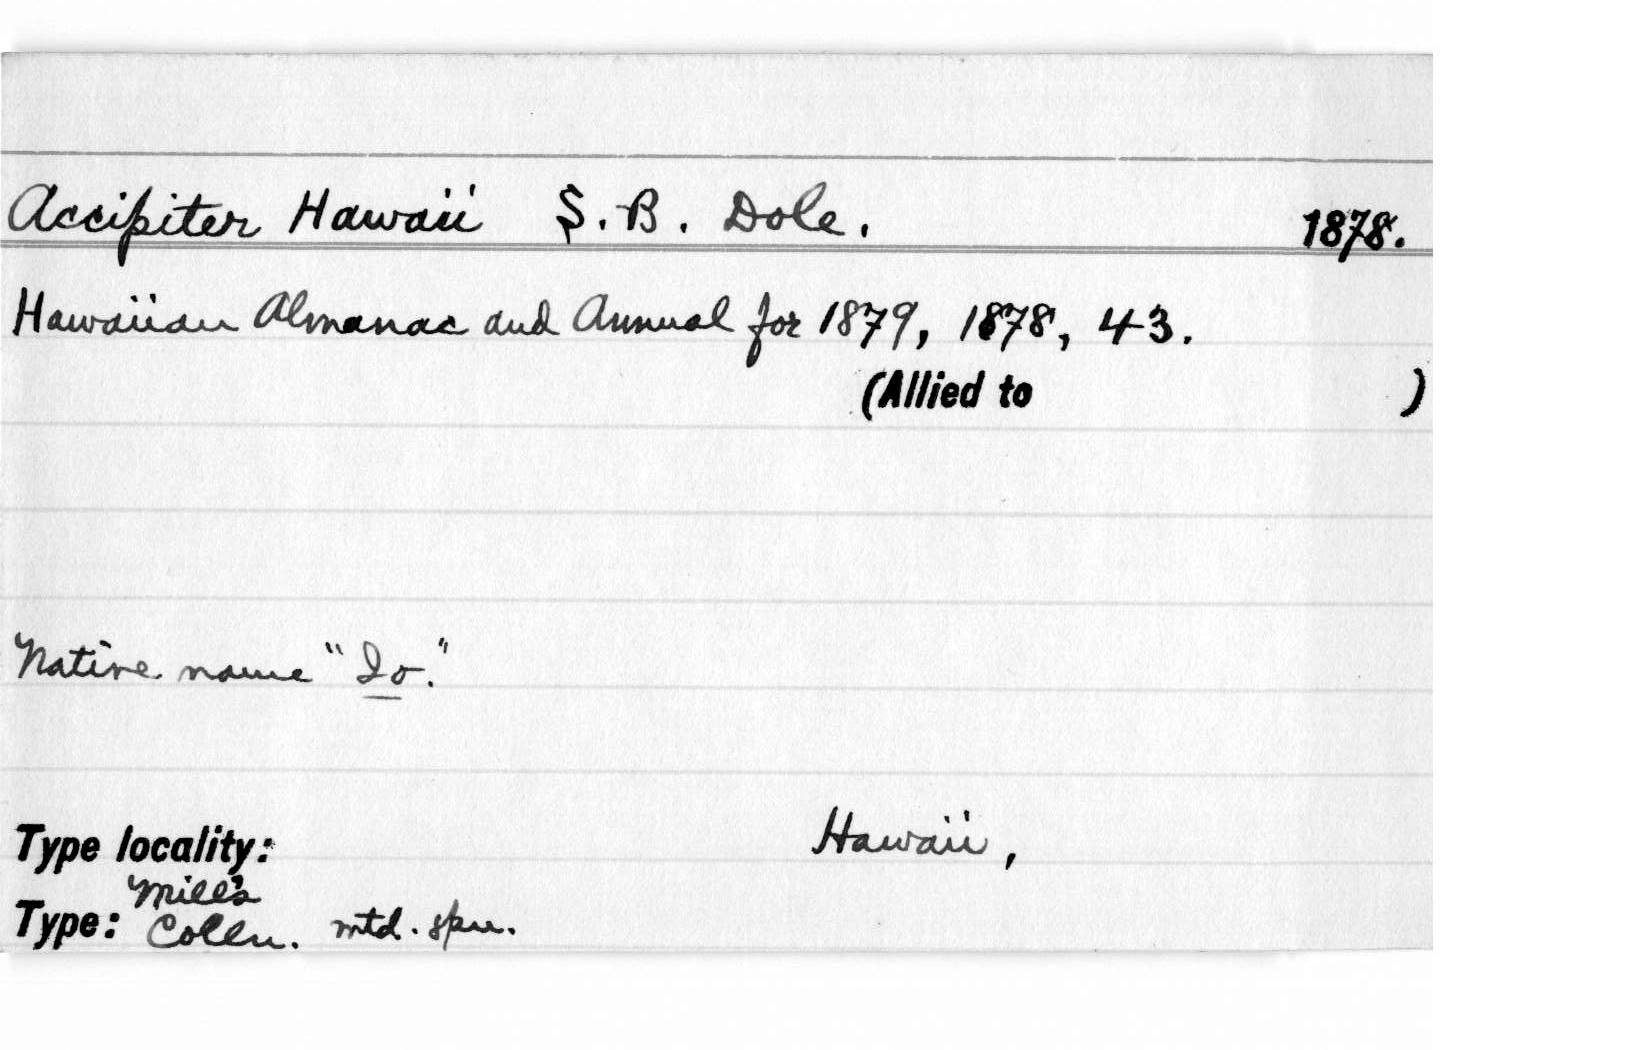 Accipiter Hawaii S. B. Dole. 1878.
Hawaiian Almanac and Annual for 1879, 1878, 43.
(Allied to )
Native name "Io."
Type locality: Hawaii,
Mills
Type: Colln. mtd. spn.